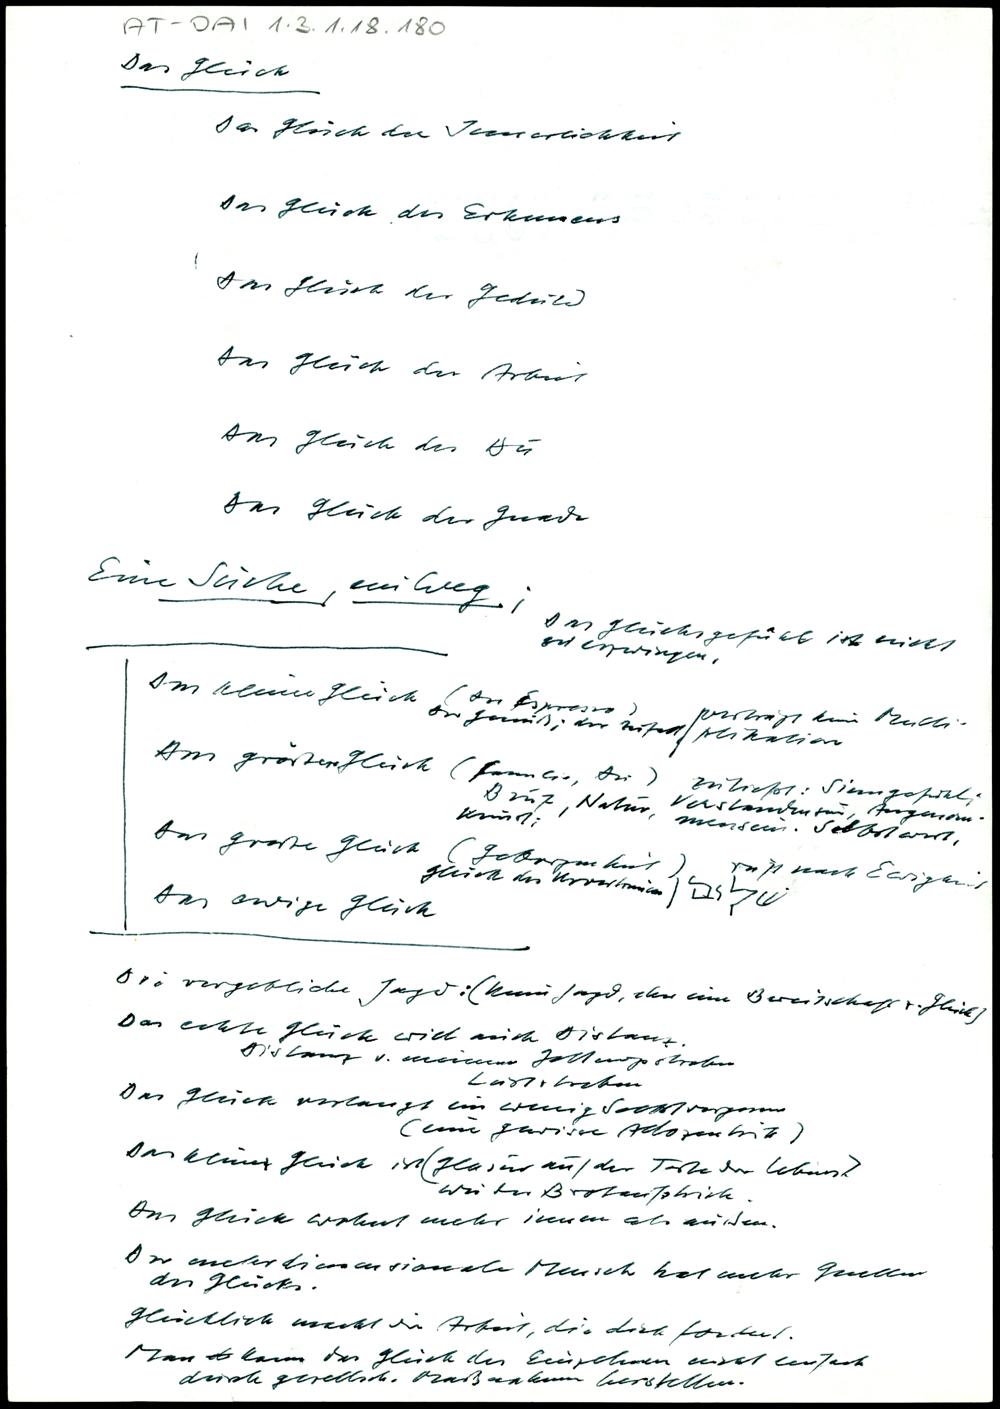 AT-DAI 1.3.1.18.180
Das Glück
Das Glück der Innerlichkeit
Das Glück des Erkennens
Das Glück der Geduld
Das Glück der Arbeit
Das Glück des Du
Das Glück der Gnade
Eine Suche, ein Weg;
Das Glücksgefühl ist nicht
zu erzwingen.
Das kleine Glück (der Espresso)
der Genuß; der Zufall / verträgt keine Multi-
plikation
Das grössere Glück (Familie, Du)
Beruf, Natur,
Kunst;
zutiefst: Sinngefühl,
Verstandensein, Angenom-
mensein. Selbstwert.
Das grosse Glück (Geborgenheit)
Glück des Urvertrauens
ruft nach Ewigkeit
Das ewige Glück
Die vergebliche Jagd: (keine Jagd, eher eine Bereitschaft z. Glück)
Das echte Glück will auch Distanz.
Distanz v. meinem Geltungsstreben
Luststreben
Das Glück verlangt ein wenig Selbstvergessen
(eine gewisse Adozentrik)
Das kleine Glück ist (Glasur auf der Torte des Lebens)
wie der Brotaufstrich.
Das Glück wohnt mehr innen als außen.
Der mehrdimensionale Mensch hat mehr Quellen
des Glücks.
Glücklich macht die Arbeit, die dich fordert.
Man kann das Glück des Einzelnen nicht einfach
durch gesellsch. Maßnahmen herstellen.